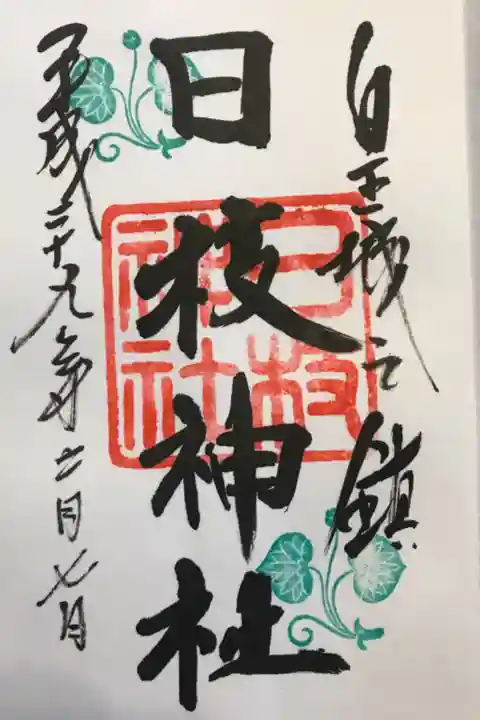 皇城之鎮
日枝神社
日枝神社
平成二十九年六月七日